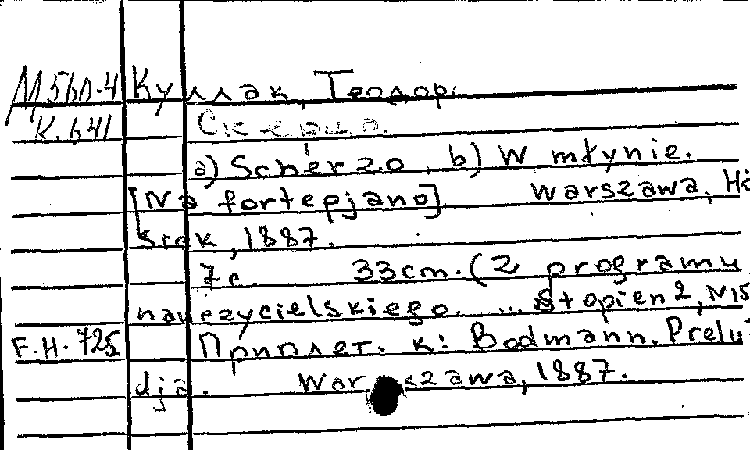 М560-4 Куллак, Теодор.
К.641 Скерцо.
a) Scherzo, b) W młynie.
[Na fortepjano] Warszawa, Hö
sick, 1887.
7c. 33cm. (2 programu
nauczycielskiego. ... Stopien 2, N15
F.H.725 Приплет. к: Bodmann. Prelu
dja. Warszawa, 1887.